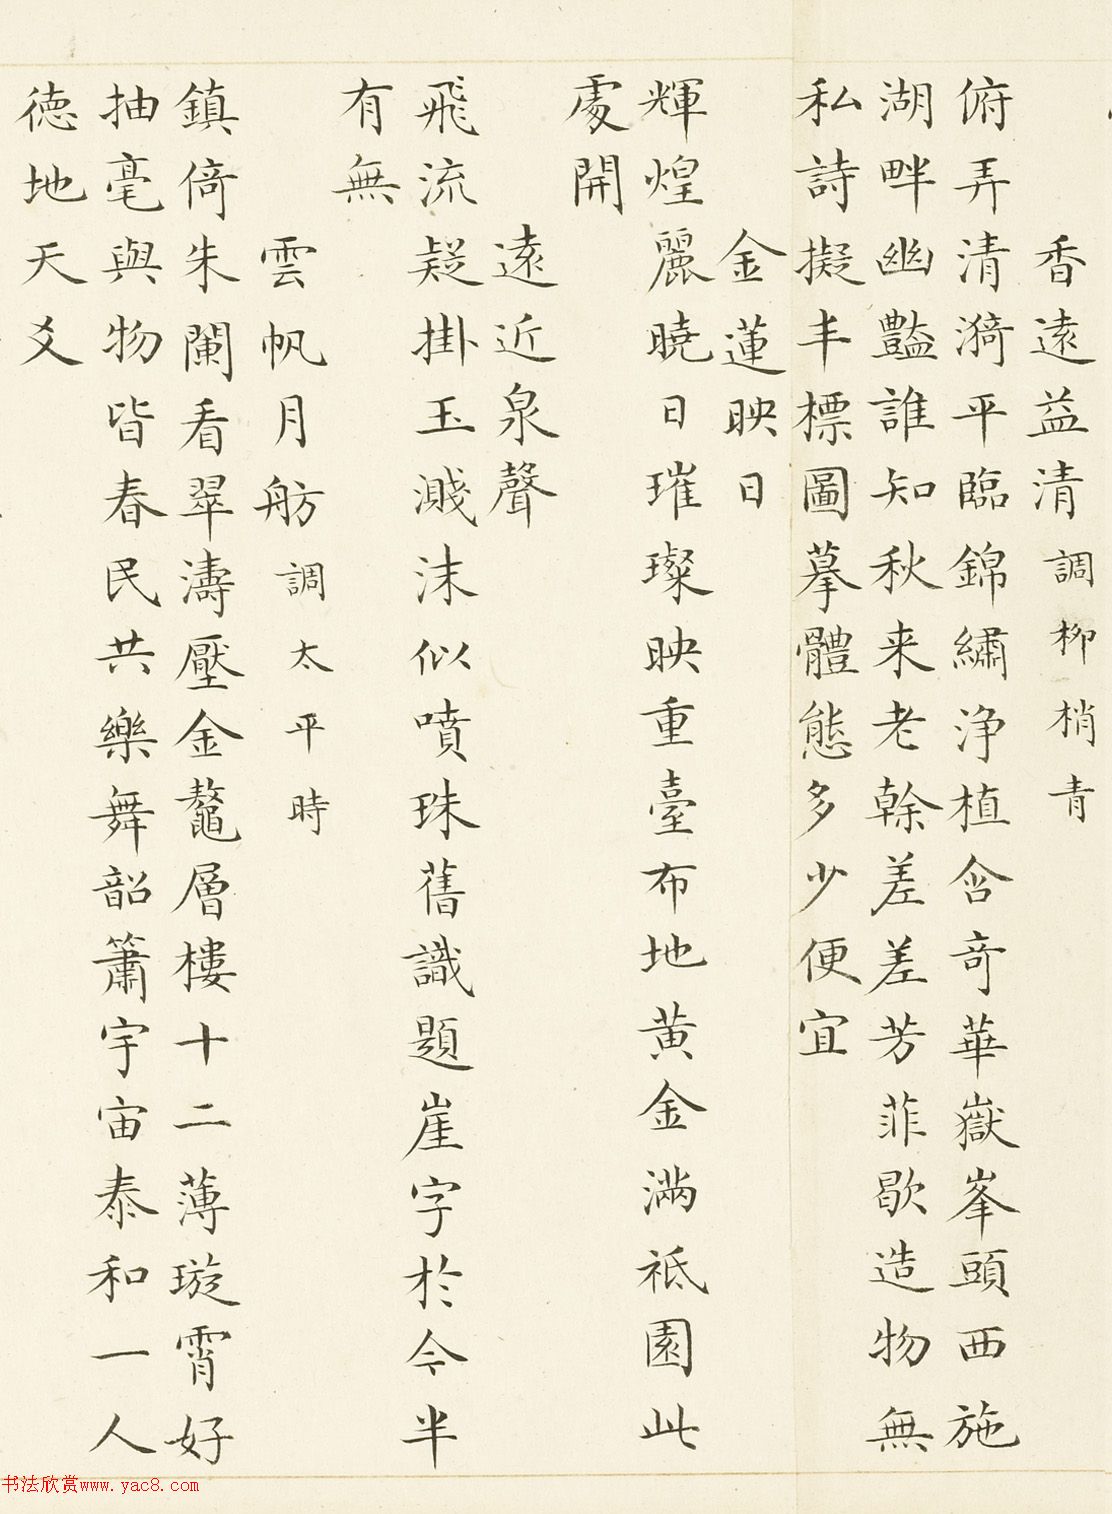 香遠益清調柳梢青
俯弄清漪平臨錦繡浄植含奇華嶽峯頭西施
湖畔幽豔誰知秋来老榦差差芳菲歇造物無
私詩擬丰標圖摹體態多少便宜
金蓮映日
輝煌麗曉日璀璨映重臺布地黄金滿祗園此
處開
遠近泉聲
飛流疑掛玉濺沫似噴珠舊識題崖字於今半
有無
雲帆月舫調太平時
鎮倚朱闌看翠濤壓金鼇層樓十二薄璇霄好
抽毫與物皆春民共樂舞韶簫宇宙泰和一人
徳地天爻
书法欣赏www.yac8.com